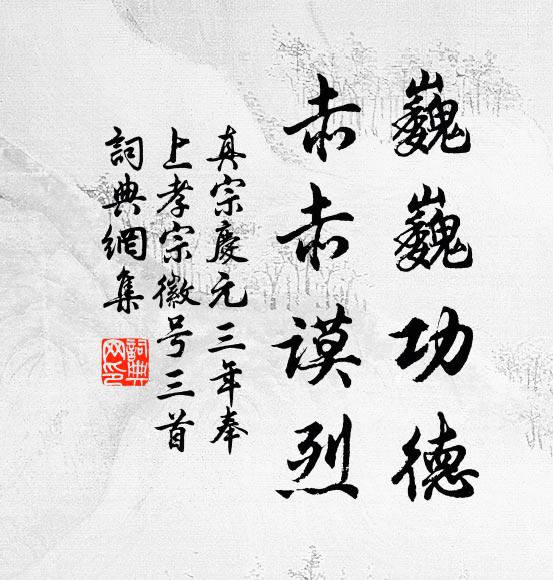 巍巍功德
赤赤谟烈
真宗慶元三年奉
上孝宗徽号三首
詞典網集
詞典
网印